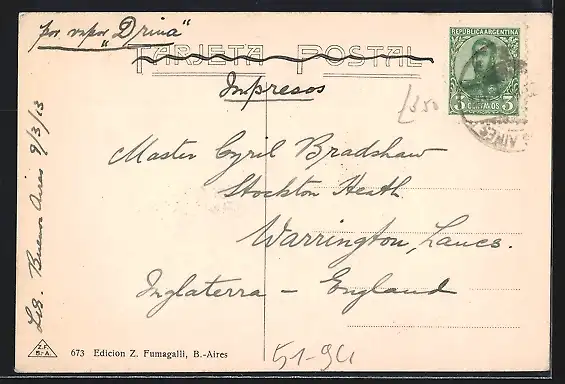 por vapor "Drina"
TARJETA POSTAL
Impresos
REPUBLICA ARGENTINA
3 CENTAVOS 3
£350
Master Cyril Bradshaw
Stockton Heath
Warrington, Lancs.
Inglaterra - England
Buenos Aires 9/3/13
Z.F.
B.-A.
673 Edicion Z. Fumagalli, B.-Aires
51-94